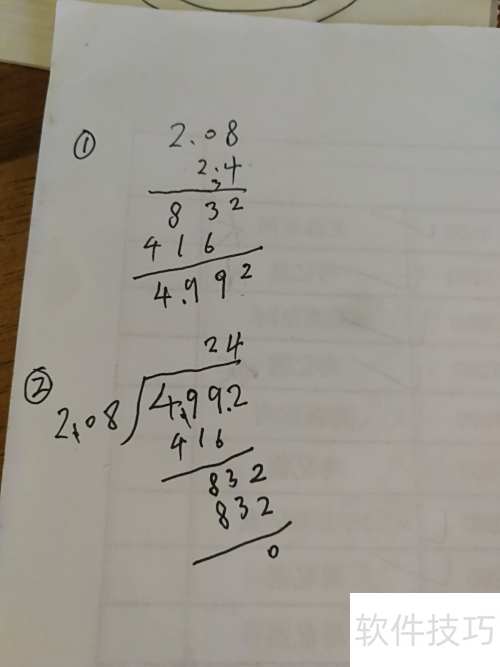 ①
2.08
2.4
3
832
416
4.992
②
24
2.08 4.99.2
416
832
832
0
软件技巧